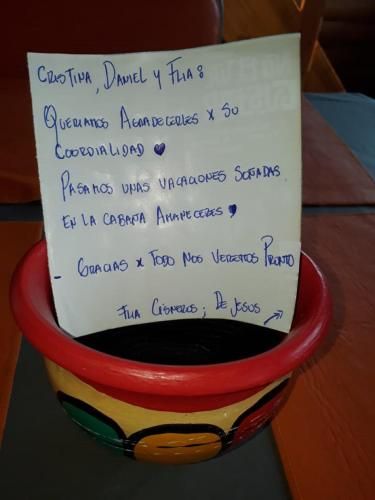 CRISTINA, DANIEL Y FLIA:
QUERIAMOS AGRADECERLES X SU
CORDIALIDAD ♥
PASAMOS UNAS VACACIONES SOÑADAS
EN LA CABAÑA AMANECERES ♥
- GRACIAS X TODO NOS VEREMOS PRONTO
FLIA CISNEROS; DE JESUS